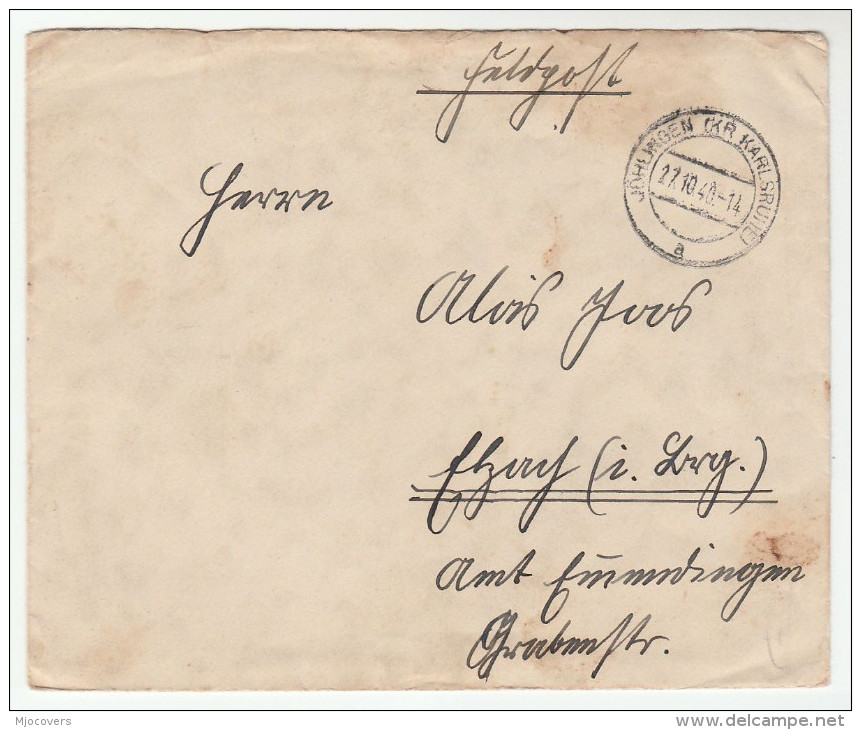 Feldpost
JÖHLINGEN (KR. KARLSRUHE)
27.10.40.-14
a
Herrn
Alois Joos
Elzach (i. Brg.)
Amt Emmendingen
Grabenstr.
Mjocovers
www.delcampe.net